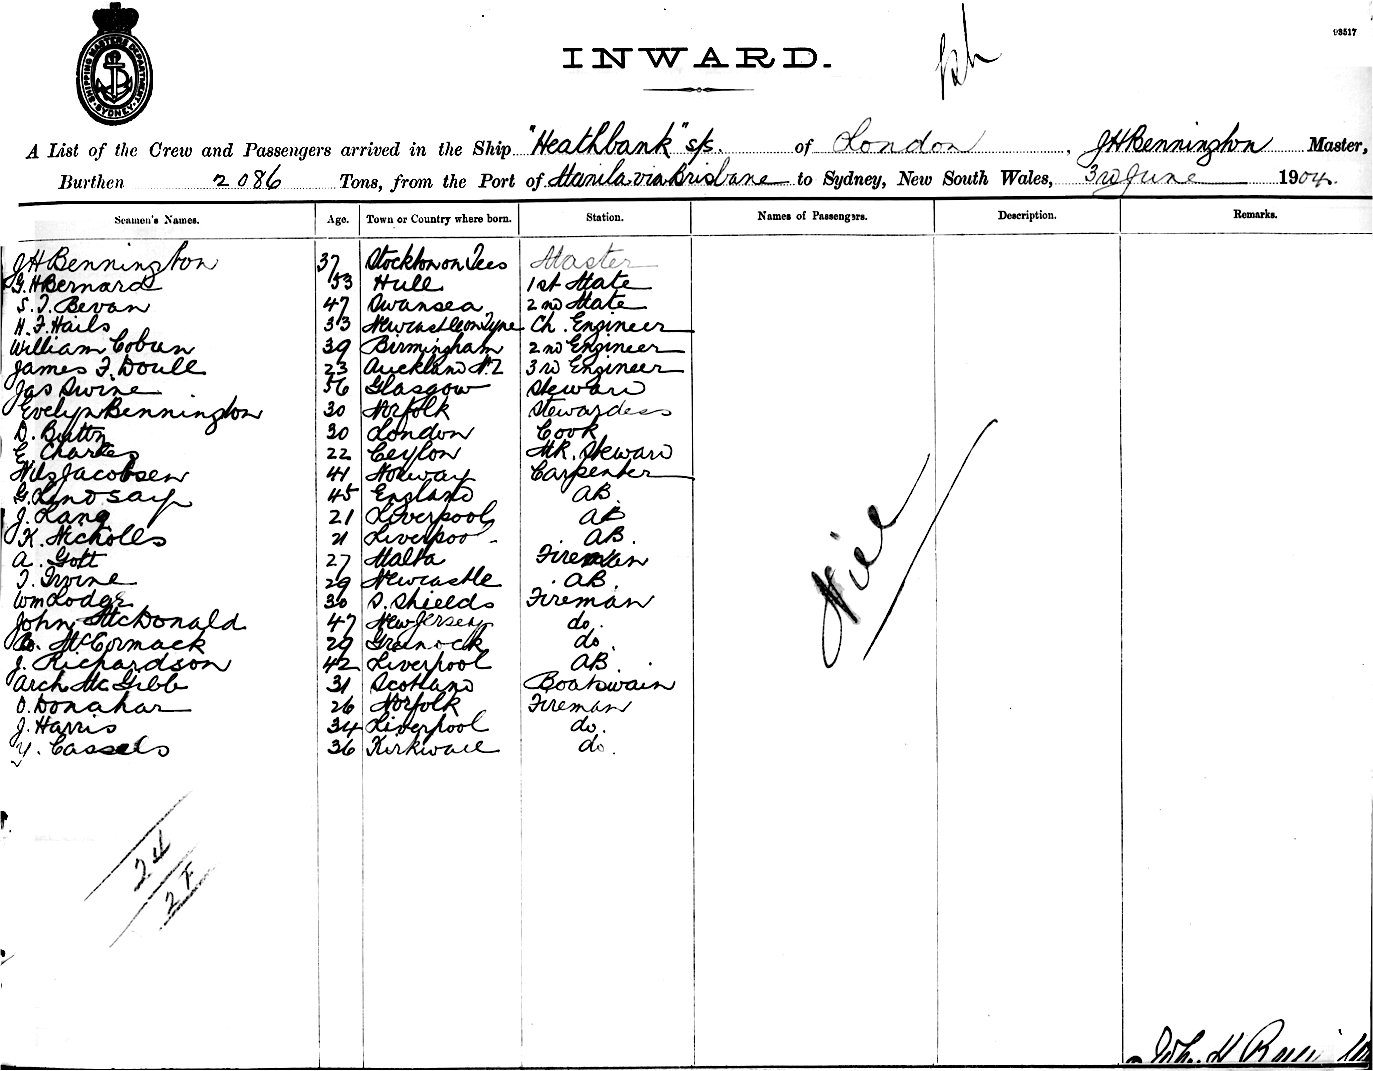 SHIPPING MASTERS DEPARTMENT SYDNEY
INWARD.
A List of the Crew and Passengers arrived in the Ship "Heathbank" s/s. of London, JH Bennington Master,
Burthen 2086 Tons, from the Port of Manila via Brisbane to Sydney, New South Wales, 3rd June 1904.
Seamen's Names. Age. Town or Country where born. Station. Names of Passengers. Description. Remarks.
JH Bennington 37 Stockton on Tees Master
G. H Bernard 53 Hull 1st Mate
S. T. Bevan 47 Swansea 2nd Mate
H. F. Hails 33 Newcastle on Tyne Ch. Engineer
William Coburn 39 Birmingham 2nd Engineer
James F. Doull 23 Auckland N.Z 3rd Engineer
Jas 56 Glasgow Steward
Evelyn Bennington 30 Norfolk Stewardess
D. Button 30 London Cook
E. Charles 22 Ceylon M.R. Steward
Nils Jacobsen 41 Norway Carpenter
G. Lindsay 45 England AB.
J. Lang 21 Liverpool AB
K. Nicholls 21 Liverpool AB.
A. Gott 27 Malta Fireman
T. Irvine 29 Newcastle AB.
Wm Lodge 30 S. Shields Fireman
John McDonald 47 New Jersey do.
McCormack 29 Greenock do.
J. Richardson 42 Liverpool AB.
Arch McGibb 31 Scotland Boatswain
O. Donahar 26 Norfolk Fireman
J. Harris 34 Liverpool do.
Y. Cassels 36 Kirkwall do.
Nill
24